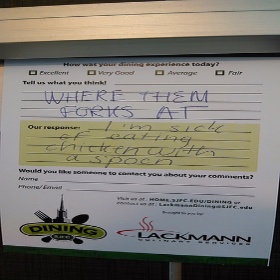 How was your dining experience today?
Excellent Very Good Average Fair
Tell us what you think!
WHERE THEM
FORKS AT
Our response: I'm sick
of eating
chicken with
a spoon
Would you like someone to contact you about your comments?
Name
Phone/Email
Visit us at: HOME.SJFC.EDU/DINING or
contact us at: LackmannDining@SJFC.edu
Brought to you by:
DINING
SJFC
LACKMANN
CULINARY SERVICES